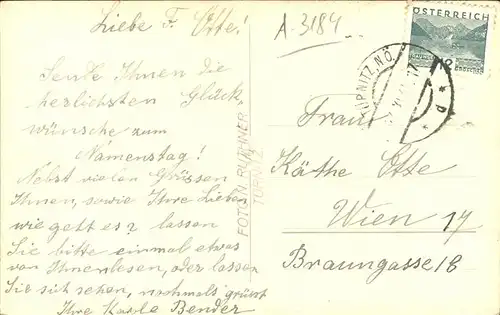 Liebe F. Otte!
Sende Ihnen die
herlichsten Glück-
wünsche zum
Namenstag!
Nebst vielen Grüssen
Ihnen, sowie Ihre Lieben
wie geht es? lassen
Sie bitte einmal etwas
von Ihnen lesen, oder lassen
Sie sich sehen, nochmals grüsst
Ihre Karla Bender
A. 3184
ÖSTERREICH
Frau
Käthe Otte
Wien 17
Braungasse 18